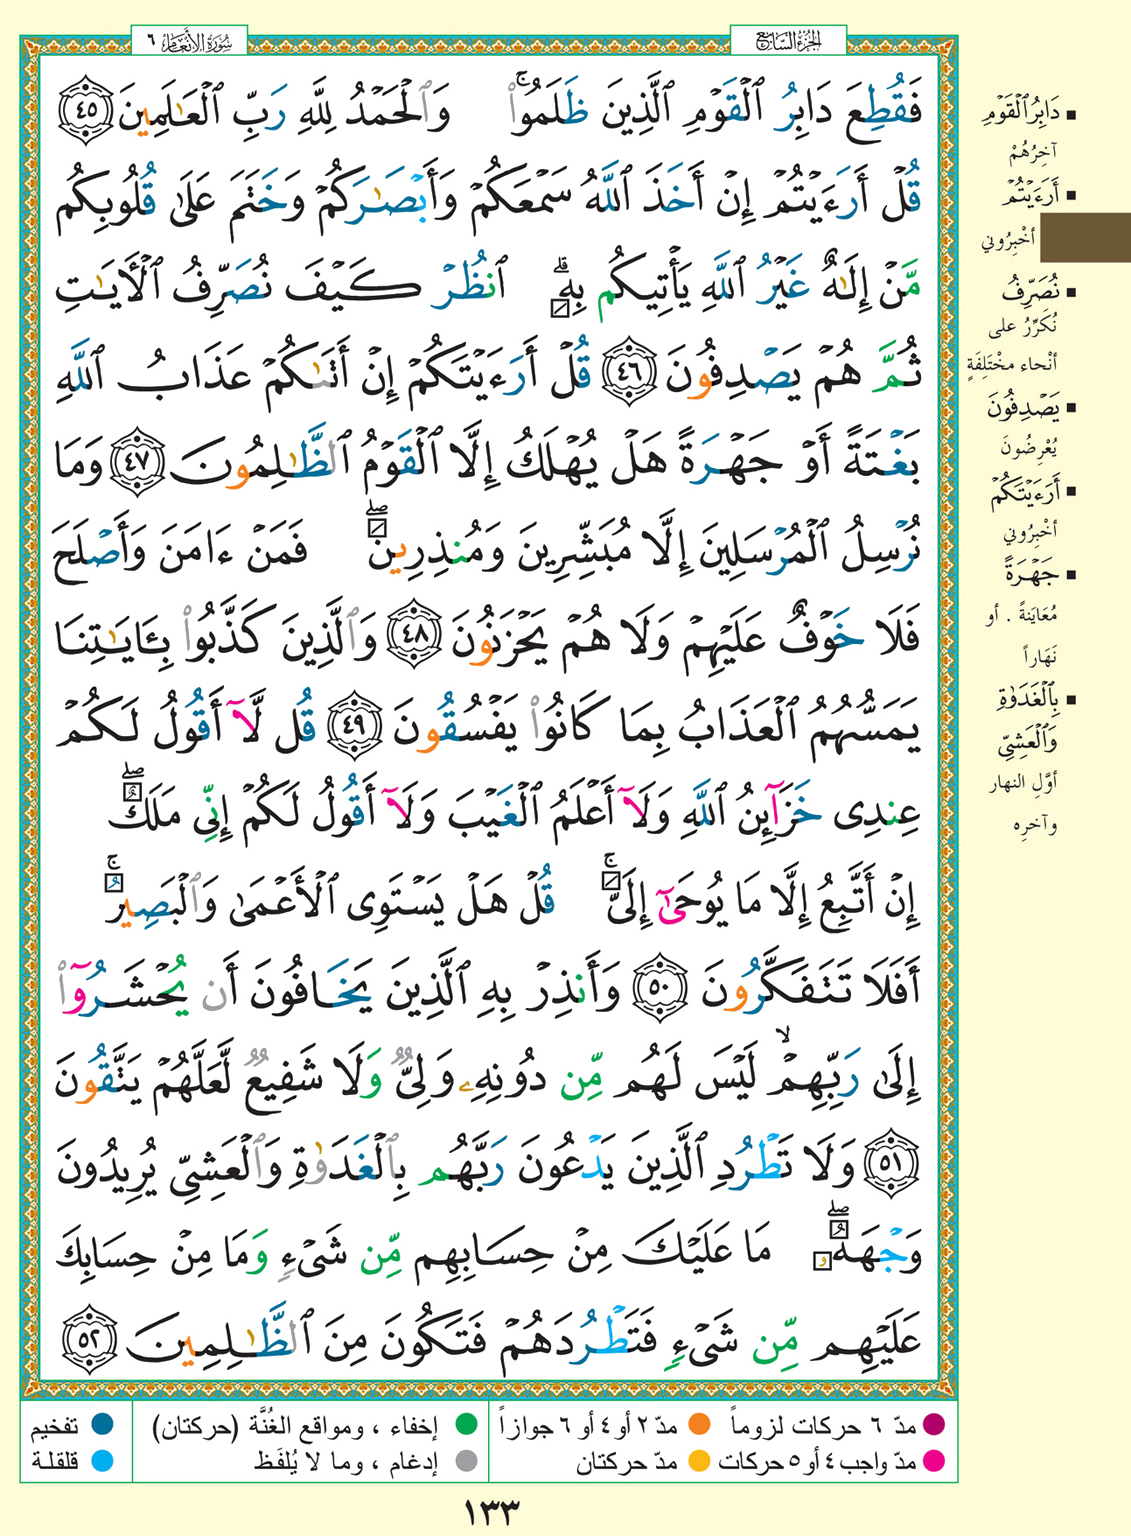 سُورَةُ الأَنْعَامِ ٦
الجُزْءُ السَّابِعُ
فَقُطِعَ دَابِرُ ٱلْقَوْمِ ٱلَّذِينَ ظَلَمُوا۟ ۚ وَٱلْحَمْدُ لِلَّهِ رَبِّ ٱلْعَـٰلَمِينَ ٤٥
قُلْ أَرَءَيْتُمْ إِنْ أَخَذَ ٱللَّهُ سَمْعَكُمْ وَأَبْصَـٰرَكُمْ وَخَتَمَ عَلَىٰ قُلُوبِكُم
مَّنْ إِلَـٰهٌ غَيْرُ ٱللَّهِ يَأْتِيكُم بِهِ ۗ ٱنظُرْ كَيْفَ نُصَرِّفُ ٱلْـَٔايَـٰتِ
ثُمَّ هُمْ يَصْدِفُونَ ٤٦ قُلْ أَرَءَيْتَكُمْ إِنْ أَتَىٰكُمْ عَذَابُ ٱللَّهِ
بَغْتَةً أَوْ جَهْرَةً هَلْ يُهْلَكُ إِلَّا ٱلْقَوْمُ ٱلظَّـٰلِمُونَ ٤٧ وَمَا
نُرْسِلُ ٱلْمُرْسَلِينَ إِلَّا مُبَشِّرِينَ وَمُنذِرِينَ ۖ فَمَنْ ءَامَنَ وَأَصْلَحَ
فَلَا خَوْفٌ عَلَيْهِمْ وَلَا هُمْ يَحْزَنُونَ ٤٨ وَٱلَّذِينَ كَذَّبُوا۟ بِـَٔايَـٰتِنَا
يَمَسُّهُمُ ٱلْعَذَابُ بِمَا كَانُوا۟ يَفْسُقُونَ ٤٩ قُل لَّآ أَقُولُ لَكُمْ
عِندِى خَزَآئِنُ ٱللَّهِ وَلَآ أَعْلَمُ ٱلْغَيْبَ وَلَآ أَقُولُ لَكُمْ إِنِّى مَلَكٌ ۖ
إِنْ أَتَّبِعُ إِلَّا مَا يُوحَىٰٓ إِلَىَّ ۚ قُلْ هَلْ يَسْتَوِى ٱلْأَعْمَىٰ وَٱلْبَصِيرُ ۚ
أَفَلَا تَتَفَكَّرُونَ ٥٠ وَأَنذِرْ بِهِ ٱلَّذِينَ يَخَافُونَ أَن يُحْشَرُوٓا۟
إِلَىٰ رَبِّهِمْ ۙ لَيْسَ لَهُم مِّن دُونِهِۦ وَلِىٌّ وَلَا شَفِيعٌ لَّعَلَّهُمْ يَتَّقُونَ
٥١ وَلَا تَطْرُدِ ٱلَّذِينَ يَدْعُونَ رَبَّهُم بِٱلْغَدَوٰةِ وَٱلْعَشِىِّ يُرِيدُونَ
وَجْهَهُۥ ۖ مَا عَلَيْكَ مِنْ حِسَابِهِم مِّن شَىْءٍ وَمَا مِنْ حِسَابِكَ
عَلَيْهِم مِّن شَىْءٍ فَتَطْرُدَهُمْ فَتَكُونَ مِنَ ٱلظَّـٰلِمِينَ ٥٢
■ دَابِرُ ٱلْقَوْمِ
آخِرُهُمْ
■ أَرَءَيْتُمْ
أخْبِرُوني
■ نُصَرِّفُ
نُكَرِّرُ على
أنْحاء مخْتَلِفَةٍ
■ يَصْدِفُونَ
يُعْرِضُونَ
■ أَرَءَيْتَكُمْ
أخْبِرُوني
■ جَهْرَةً
مُعَايَنةً . أو
نَهَاراً
■ بِٱلْغَدَوٰةِ
وَٱلْعَشِىِّ
أوَّلِ النهار
وآخرِه
مدّ ٦ حركات لزوماً
مدّ ٢ أو ٤ أو ٦ جوازاً
إخفاء ، ومواقع الغُنَّة (حركتان)
تفخيم
مدّ واجب ٤ أو ٥ حركات
مدّ حركتان
إدغام ، وما لا يُلفَظ
قلقلة
١٣٣